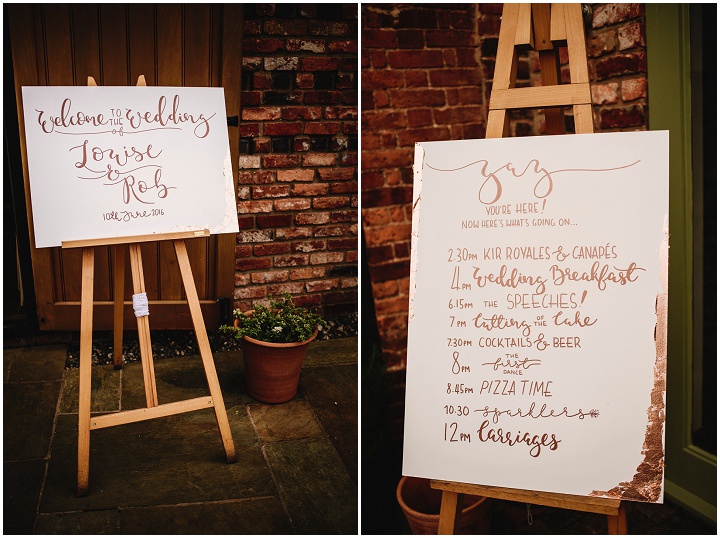 Welcome TO THE Wedding
of
Louise
&
Rob
10th June 2016
yay
YOU'RE HERE!
NOW HERE'S WHAT'S GOING ON...
2.30PM KIR ROYALES & CANAPÉS
4PM Wedding Breakfast
6.15PM THE SPEECHES!
7PM Cutting OF THE Cake
7.30PM COCKTAILS & BEER
8PM THE first DANCE
8.45PM PIZZA TIME
10.30 sparklers
12PM Carriages